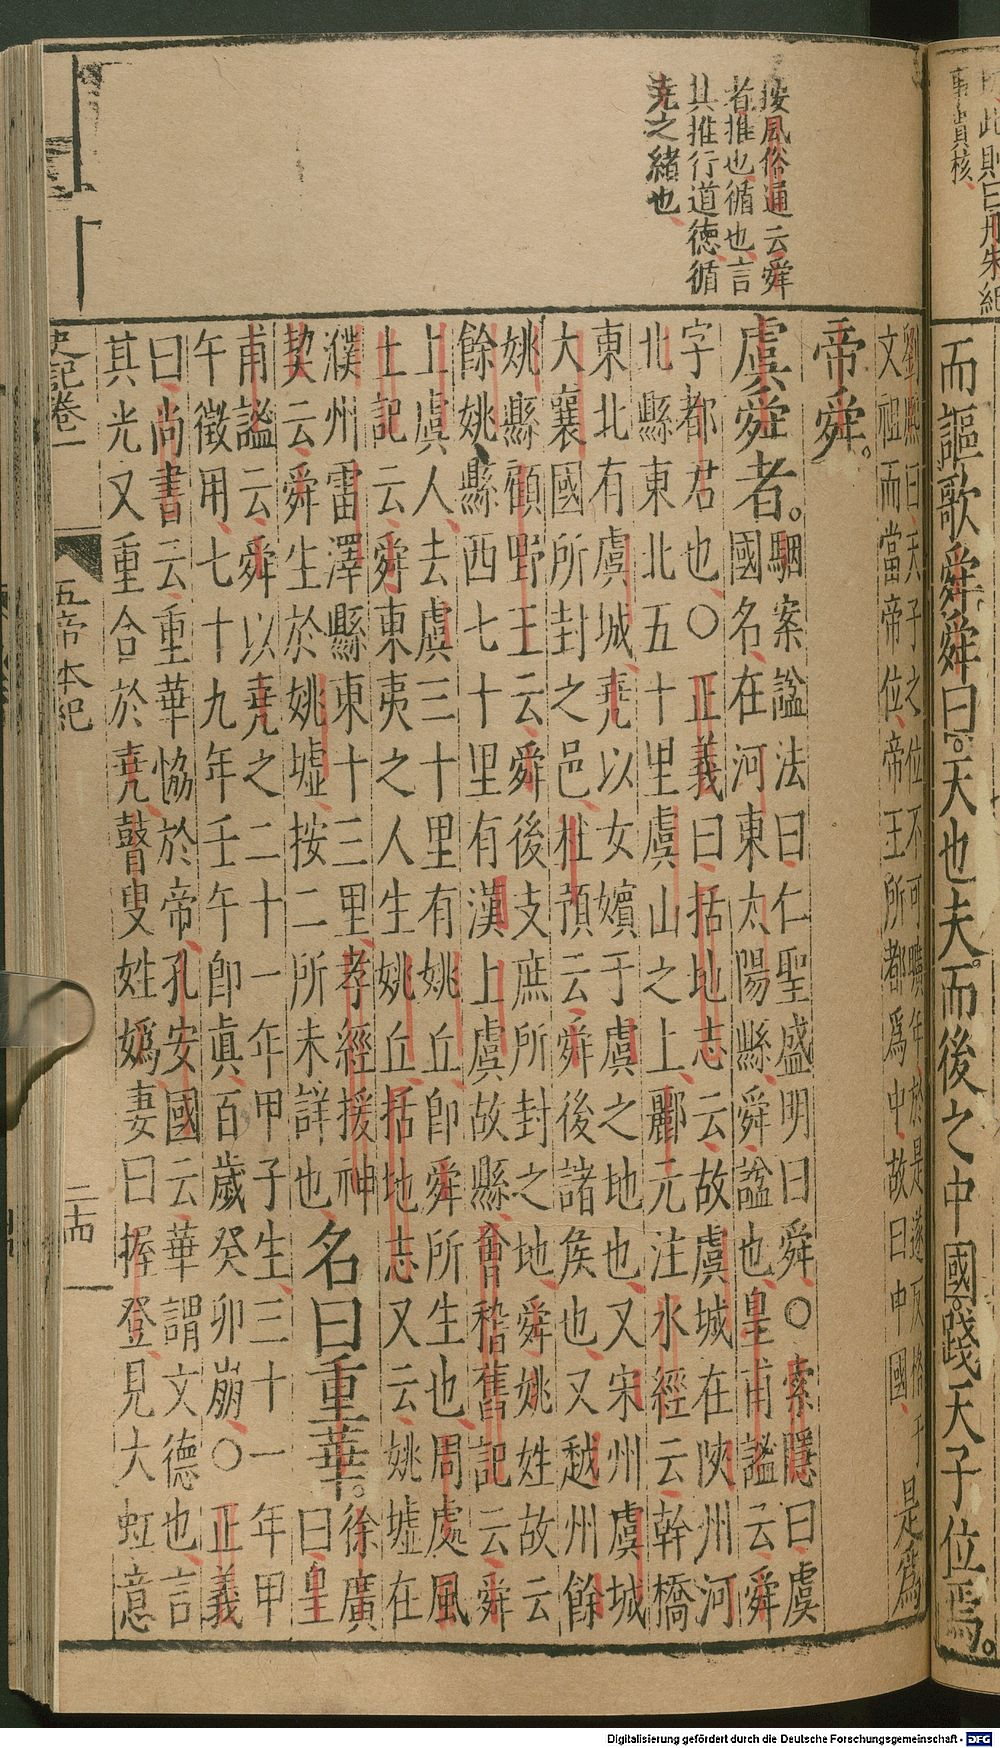 而謳歌舜舜曰。天也夫。而後之中國。踐天子位焉。
按風俗通云舜
者推也循也言
其推行道德循
堯之緒也
劉熙曰天子之位不可曠年於是遂反格于
文祖而當帝位帝王所都爲中故曰中國
是爲
帝舜。
虞舜者。
駰案諡法曰仁聖盛明曰舜〇索隱曰虞
國名在河東太陽縣舜諡也皇甫謐云舜
字都君也〇正義曰括地志云故虞城在陝州河
北縣東北五十里虞山之上酈元注水經云幹橋
東北有虞城堯以女嬪于虞之地也又宋州虞城
大襄國所封之邑杜預云舜後諸侯也又越州餘
姚縣顧野王云舜後支庶所封之地舜姚姓故云
餘姚縣西七十里有漢上虞故縣會稽舊記云舜
上虞人去虞三十里有姚丘卽舜所生也周處風
土記云舜東夷之人生姚丘括地志又云姚墟在
濮州雷澤縣東十三里孝經援神
契云舜生於姚墟按二所未詳也
名曰重華。
徐廣
曰皇
甫謐云舜以堯之二十一年甲子生三十一年甲
午徵用七十九年壬午卽眞百歲癸卯崩〇正義
曰尚書云重華恊於帝孔安國云華謂文德也言
其光又重合於堯瞽叟姓嬀妻曰握登見大虹意
史記卷一 五帝本紀 二十四
Digitalisierung gefördert durch die Deutsche Forschungsgemeinschaft - DFG